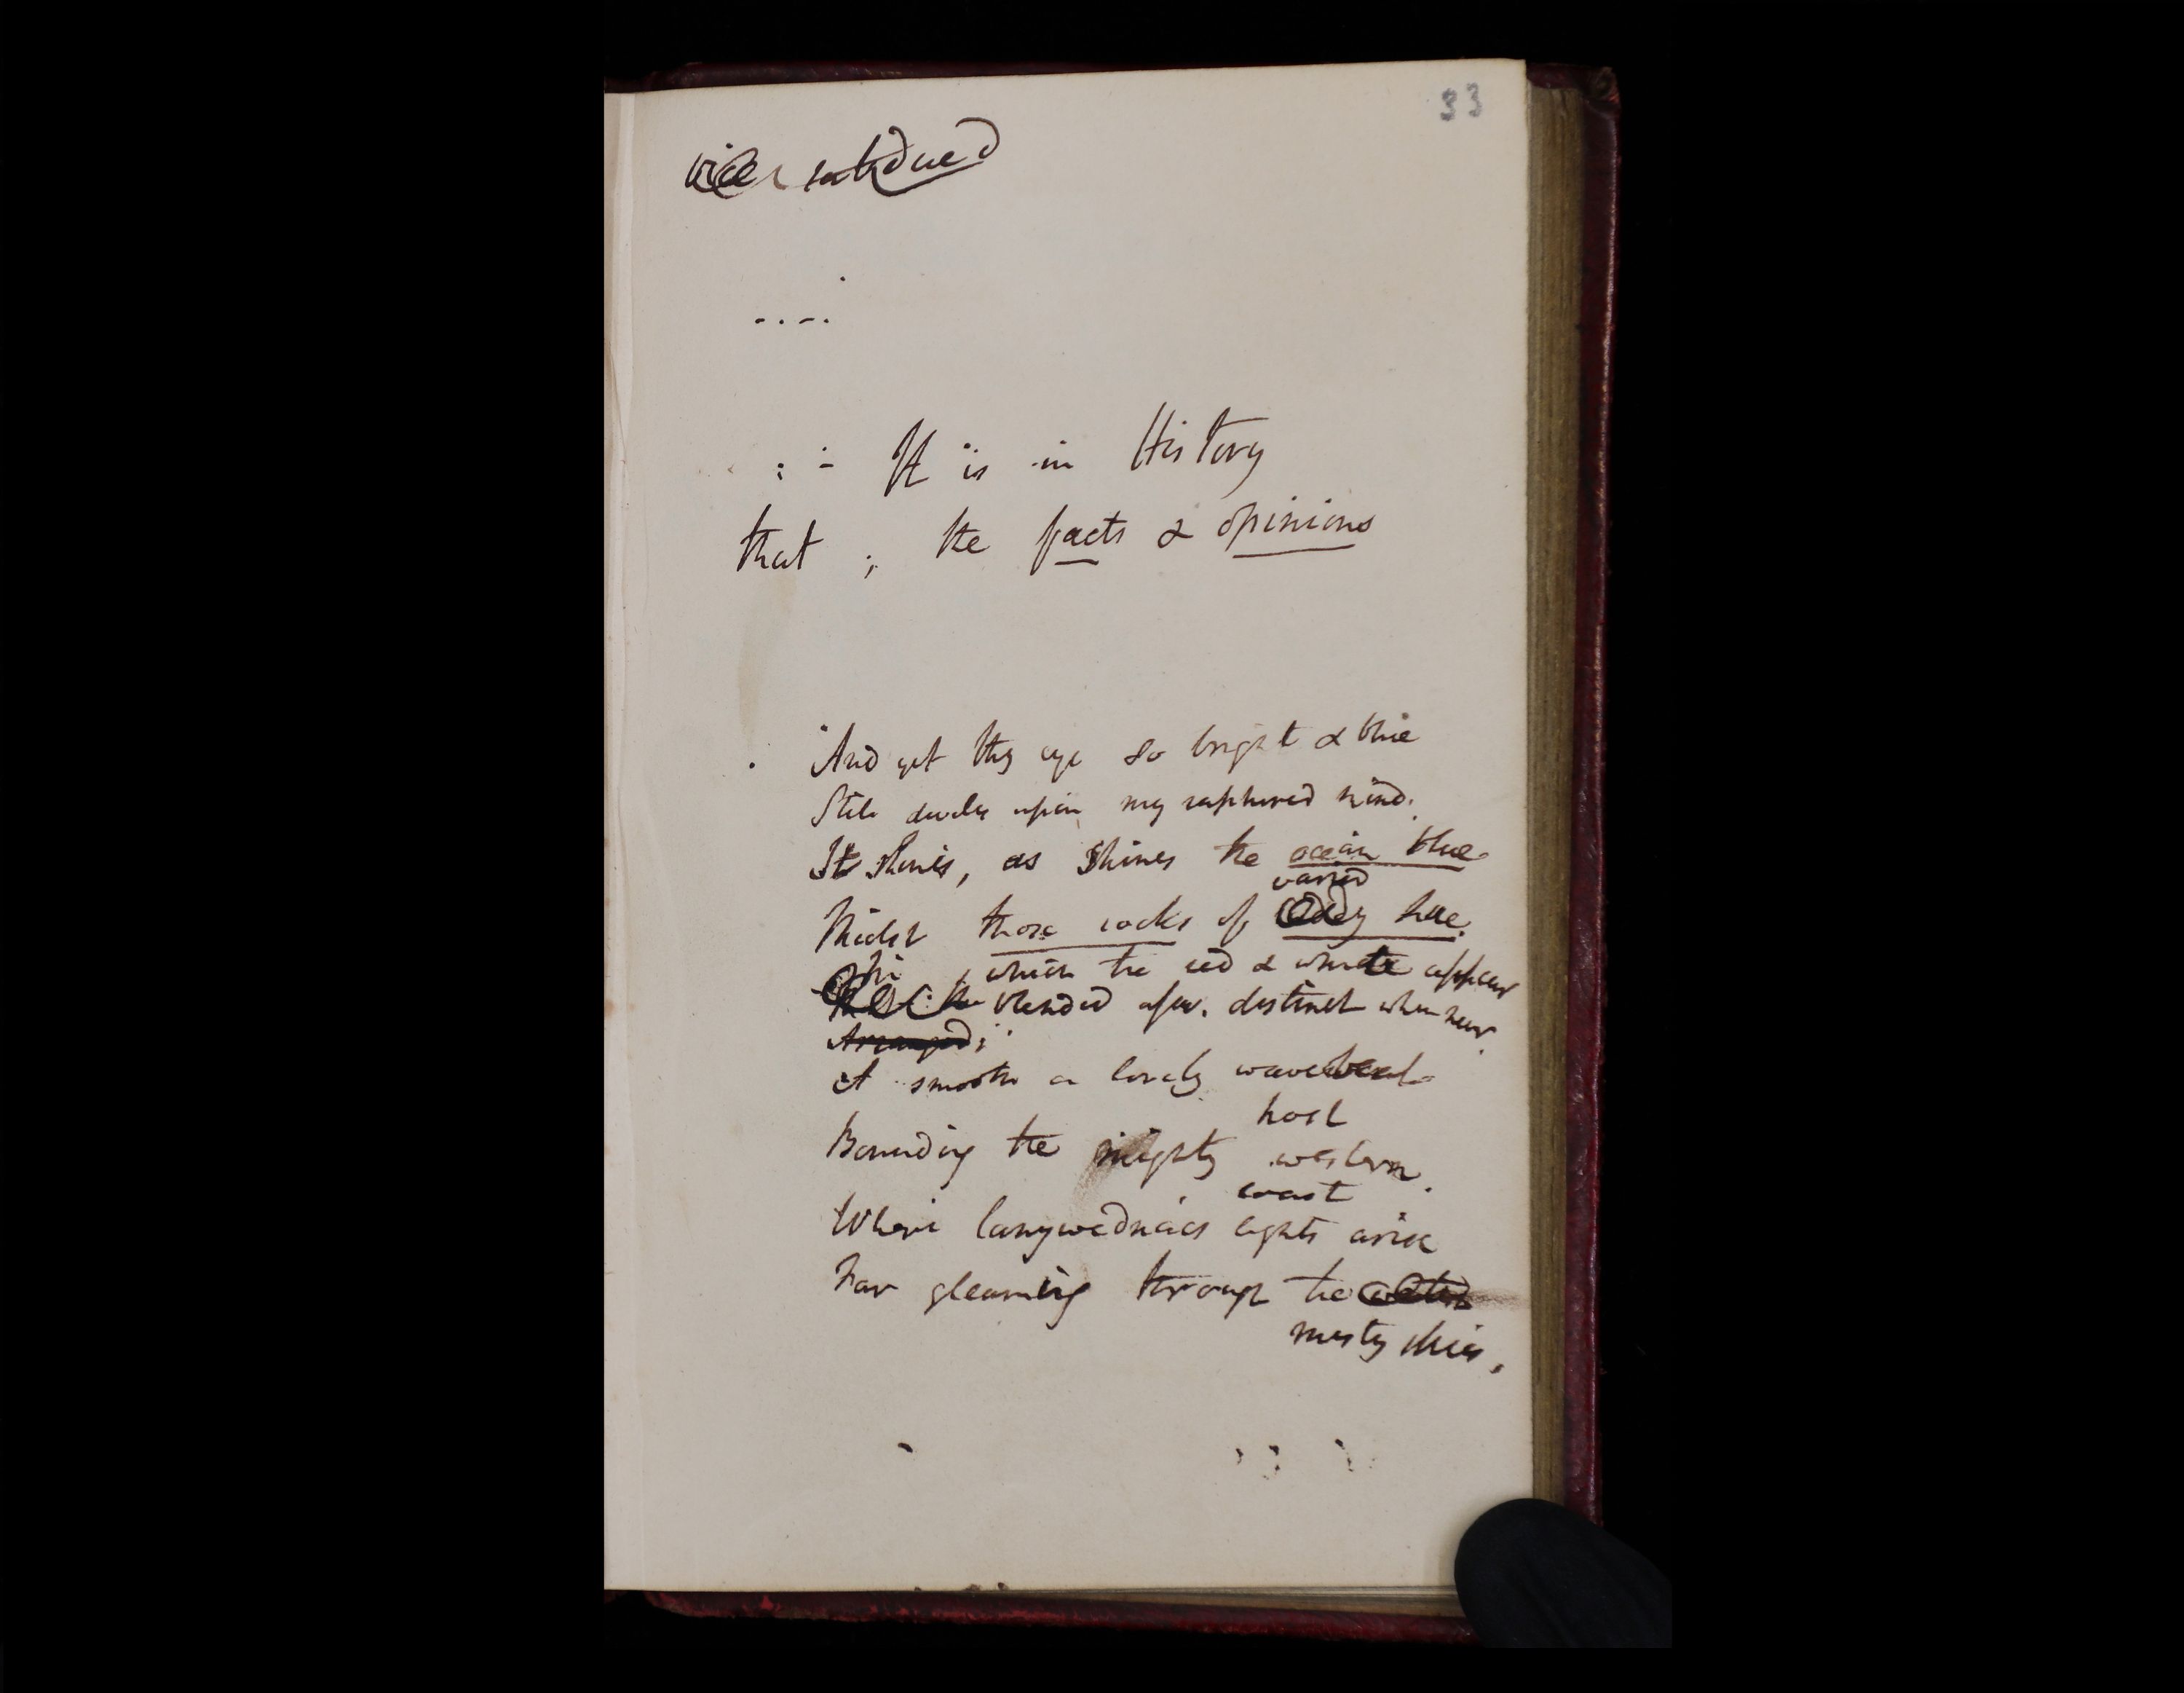 33
subdued
It is in History
that ; the facts & opinions
And yet thy eye so bright & blue
Still dwells upon my raptured mind.
It shines, as shines the ocean blue
varied
Midst those rocks of hue.
In which the red & white appear
blended afar. distinct when near.
Arranged;
A smooth a lovely wave
host
Bounding the mighty western
coast
Where lights arise
Far gleaming through the
misty skies,